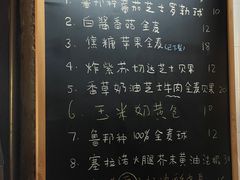 1. 鲁邦种番茄芝士罗勒球 10
2. 白酱香菇全麦 12
3. 焦糖苹果全麦(还不酸) 18
4. 炸紫苏切达芝士贝果 12
5. 香草奶油芝士牛肉全麦贝果 20
6. 玉米奶黄包 12
7. 鲁邦种100%全麦球 12
8. 塞拉诺火腿芥末黄油法棍